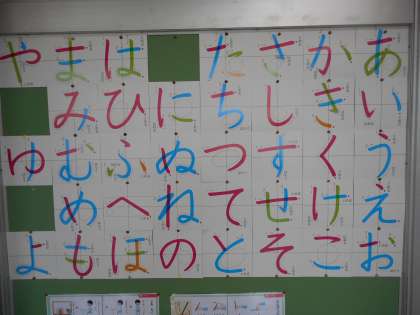 あいうえお
かきくけこ
さしすせそ
たちつてと
にぬねの
はひふへほ
まみむめも
やゆよ